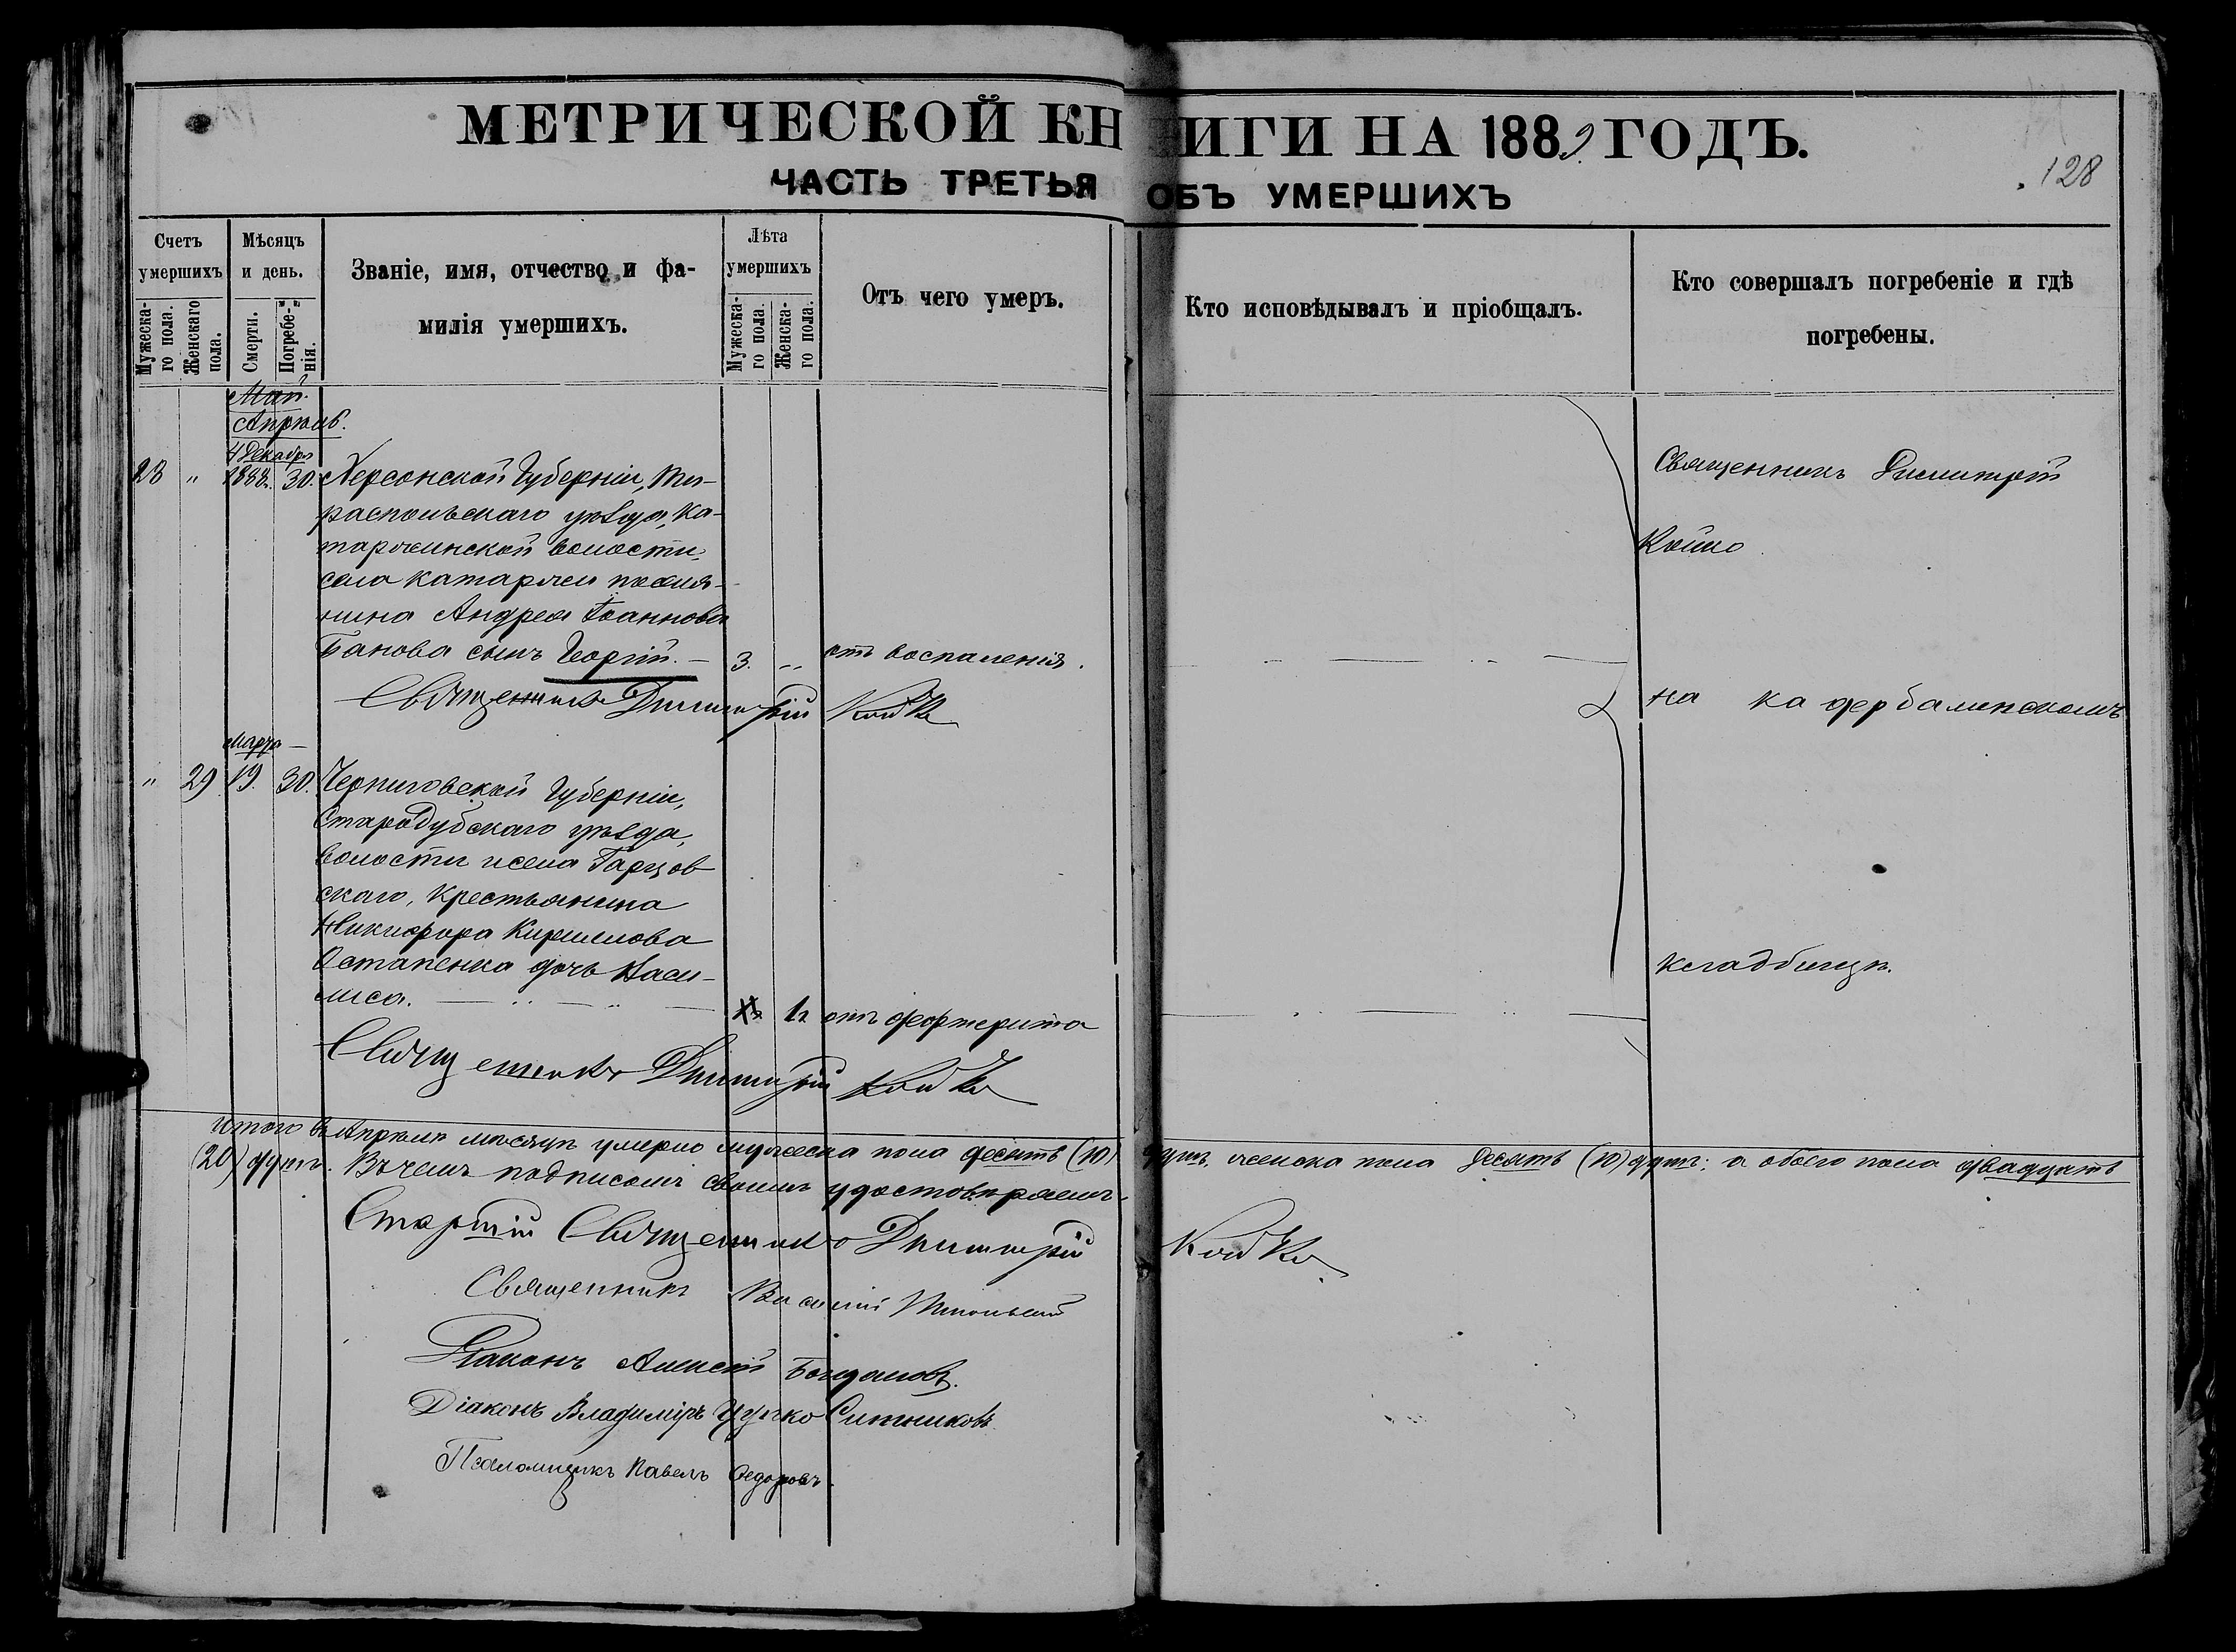 МЕТРИЧЕСКОЙ КНИГИ НА 1889 ГОДЪ.
ЧАСТЬ ТРЕТЬЯ ОБЪ УМЕРШИХЪ
128
Счетъ умершихъ
Мужеска-го пола.
Женскаго пола.
Мѣсяцъ и день.
Смерти.
Погребе-нія.
Званіе, имя, отчество и фа-
милія умершихъ.
Лѣта умершихъ
Мужеска-го пола.
Женска-го пола.
Отъ чего умеръ.
Кто исповѣдывалъ и пріобщалъ.
Кто совершалъ погребеніе и гдѣ
погребены.
Май.
Апрѣль.
4 Декабря
28 " 1888. 30. Херсонской Губерніи, Ти-
распольскаго уѣзда, Ка-
таржинской волости,
села Катаржи поселя-
нина Андрея Іоаннова
Банова сынъ Георгій. — 3. " отъ воспаленія.
Священникъ Димитрій Койко
Священникъ Димитрій
Койко
на
кладбищѣ.
Марта
" 29 19. 30. Черниговской Губерніи,
Стародубскаго уѣзда,
волости и села Гарцов
скаго, крестьянина
Никифора Кириллова
Остапенка дочь Васи-
лиса. 12 отъ дефтерита
Священникъ Димитрій Койко
Итого въ Апрѣлѣ мѣсяцѣ умерло мужеска пола десять (10) душъ, женска пола десять (10) душъ; а обоего пола двадцать
(20) душъ. Въ чемъ подписомъ своимъ удостовѣряемъ.
Старшій Священникъ Димитрій Койко.
Священникъ Василій
Діаконъ Алексѣй Богдановъ.
Діаконъ Владиміръ Ситниковъ.
Псаломщикъ Павелъ Федоровъ.